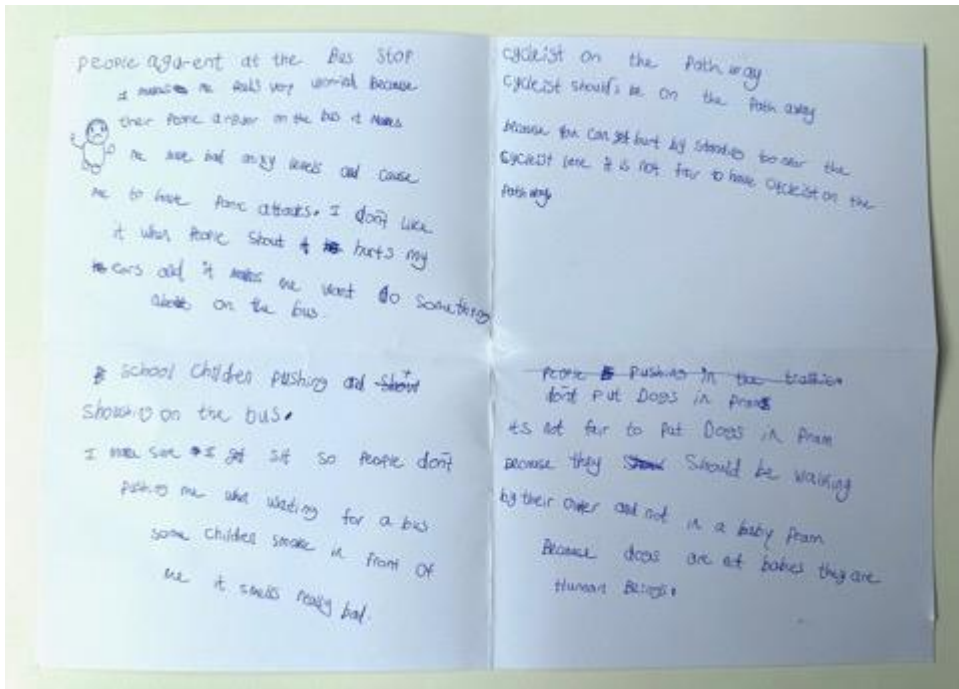 People agurent at the Bus Stop
it makes me feels very worried Because
their People arguer on the bus it makes
me have bad angry levels and cause
me to have Panic attacks. I don't like
it when People Shout it hurts my
ears and it makes me want do something
about on the bus.
School Children pushing and
Shouting on the bus.
I make sure I get sit so People don't
pushing me when waiting for a bus
some Childen smoke in front of
me it smells really bad.
Cycleist on the Path way
Cycleist should be on the Path away
because you can get hurt by standing too near the
Cycleist lane it is not fair to have Cycleist on the
Path way
People Pushing in the
don't Put Dogs in Prams
its not fair to Put Dogs in Pram
Because they Should be walking
by their Owner and not in a baby Pram
Because dogs are not babies they are
Human Beings.